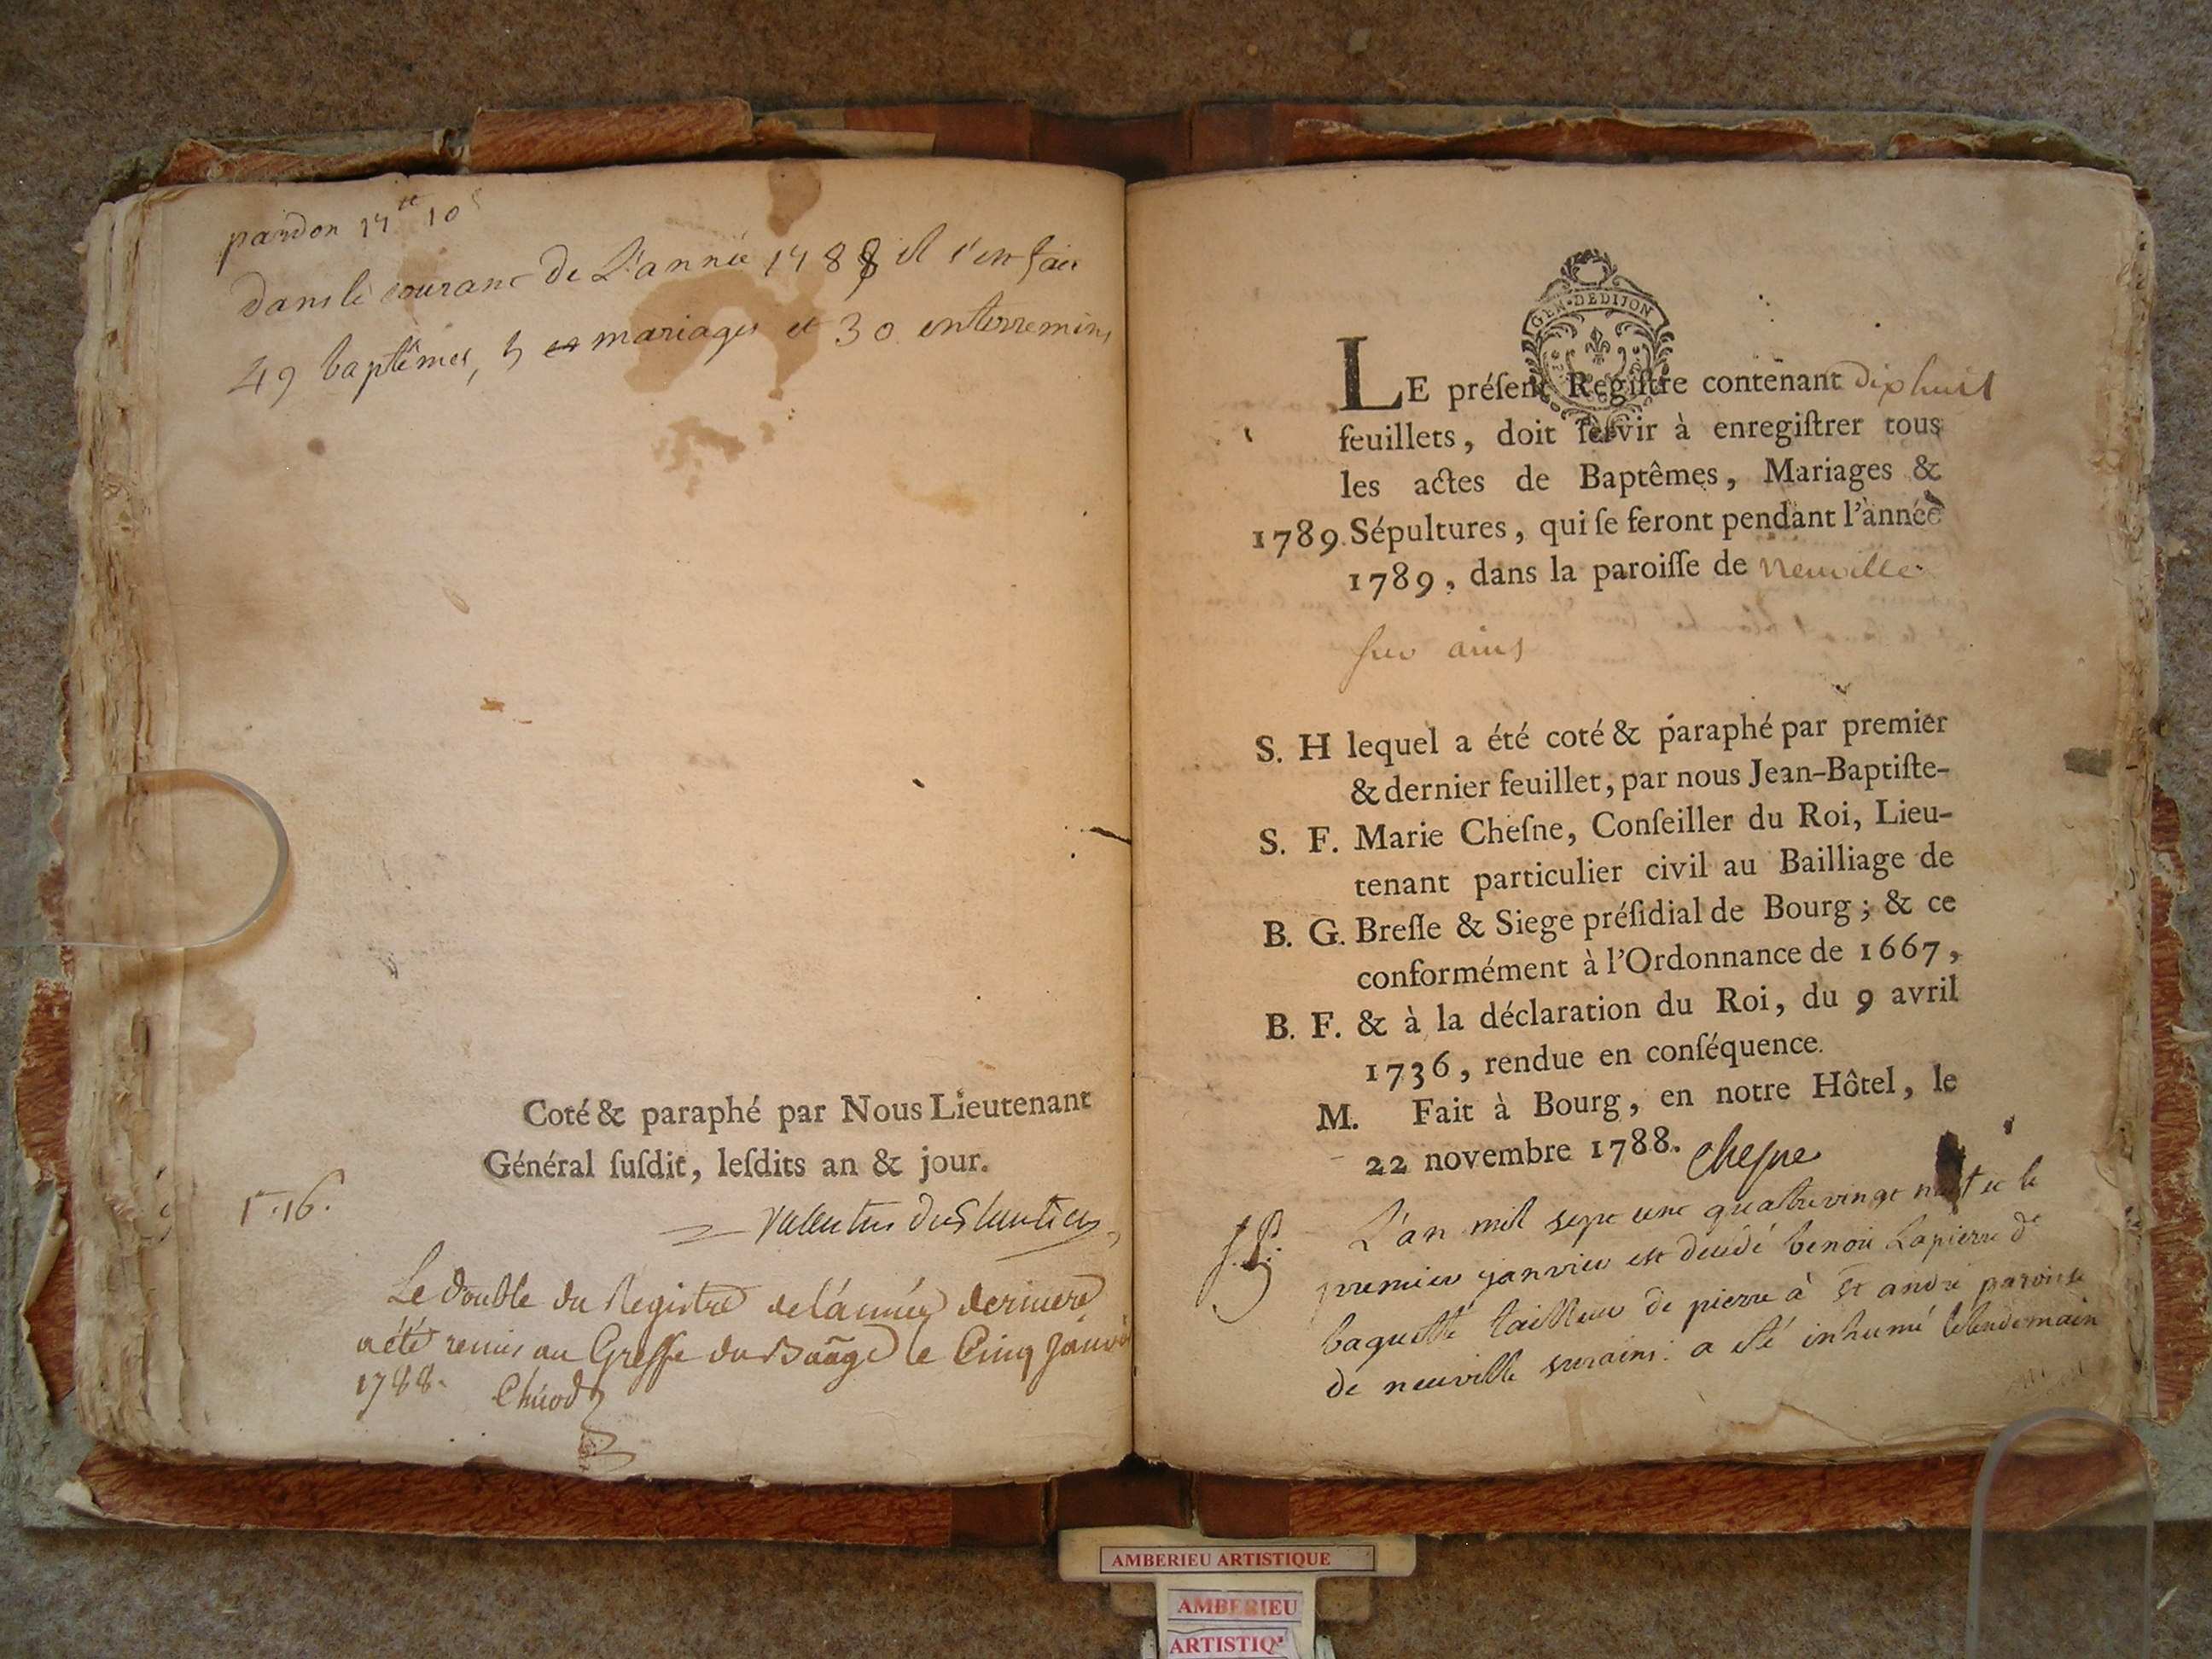 pardon 17 tt 10 s
dans le courant de L'année 1788 il s'est fait
49 baptêmes, 5 mariages et 30 enterremens
Coté & paraphé par Nous Lieutenant
Général ſuſdit, leſdits an & jour.
Le double du Registre de l'année derniere
a été remis au Greffe du Baãge le Cinq Janvi
1788.
GEN · DEDIJON
LE préſent Regiſtre contenant dix huit
feuillets, doit ſervir à enregiſtrer tous
les actes de Baptêmes, Mariages &
1789. Sépultures, qui ſe feront pendant l'année
1789, dans la paroiſſe de Neuville
sur ains
S. H lequel a été coté & paraphé par premier
& dernier feuillet, par nous Jean-Baptiſte-
S. F. Marie Cheſne, Conſeiller du Roi, Lieu-
tenant particulier civil au Bailliage de
B. G. Breſſe & Siege préſidial de Bourg ; & ce
conformément à l'Ordonnance de 1667,
B. F. & à la déclaration du Roi, du 9 avril
1736, rendue en conſéquence.
M. Fait à Bourg, en notre Hôtel, le
22 novembre 1788. Chesne
L'an mil sept cent quatre vingt neuf et le
premier janvier est décédé benoit Lapierre dt
baguette tailleur de pierre à St andré paroisse
de neuville surains. a été inhumé le lendemain
AMBERIEU ARTISTIQUE
AMBERIEU
ARTISTIQ